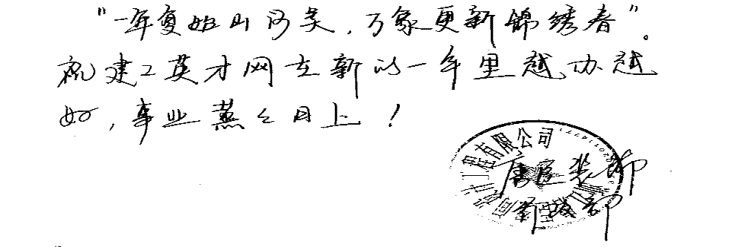 "一年复始山河美，万象更新锦绣春"。
祝建工英才网在新的一年里越办越
好，事业蒸蒸日上！
工程有限公司
装饰
部